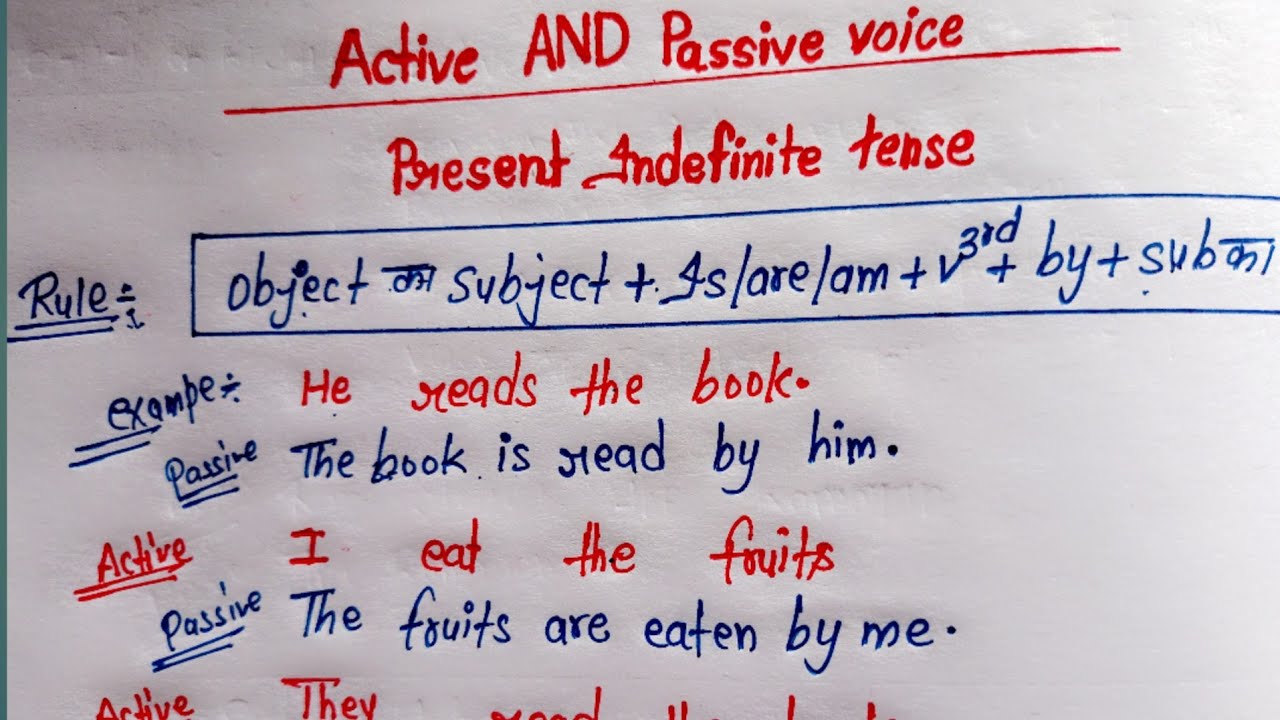 Active AND Passive voice
Present Indefinite tense
Rule:
object का subject + Is/are/am + v3rd + by + sub का
exampe: He reads the book.
Passive The book is read by him.
Active I eat the fruits
Passive The fruits are eaten by me.
Active They read the